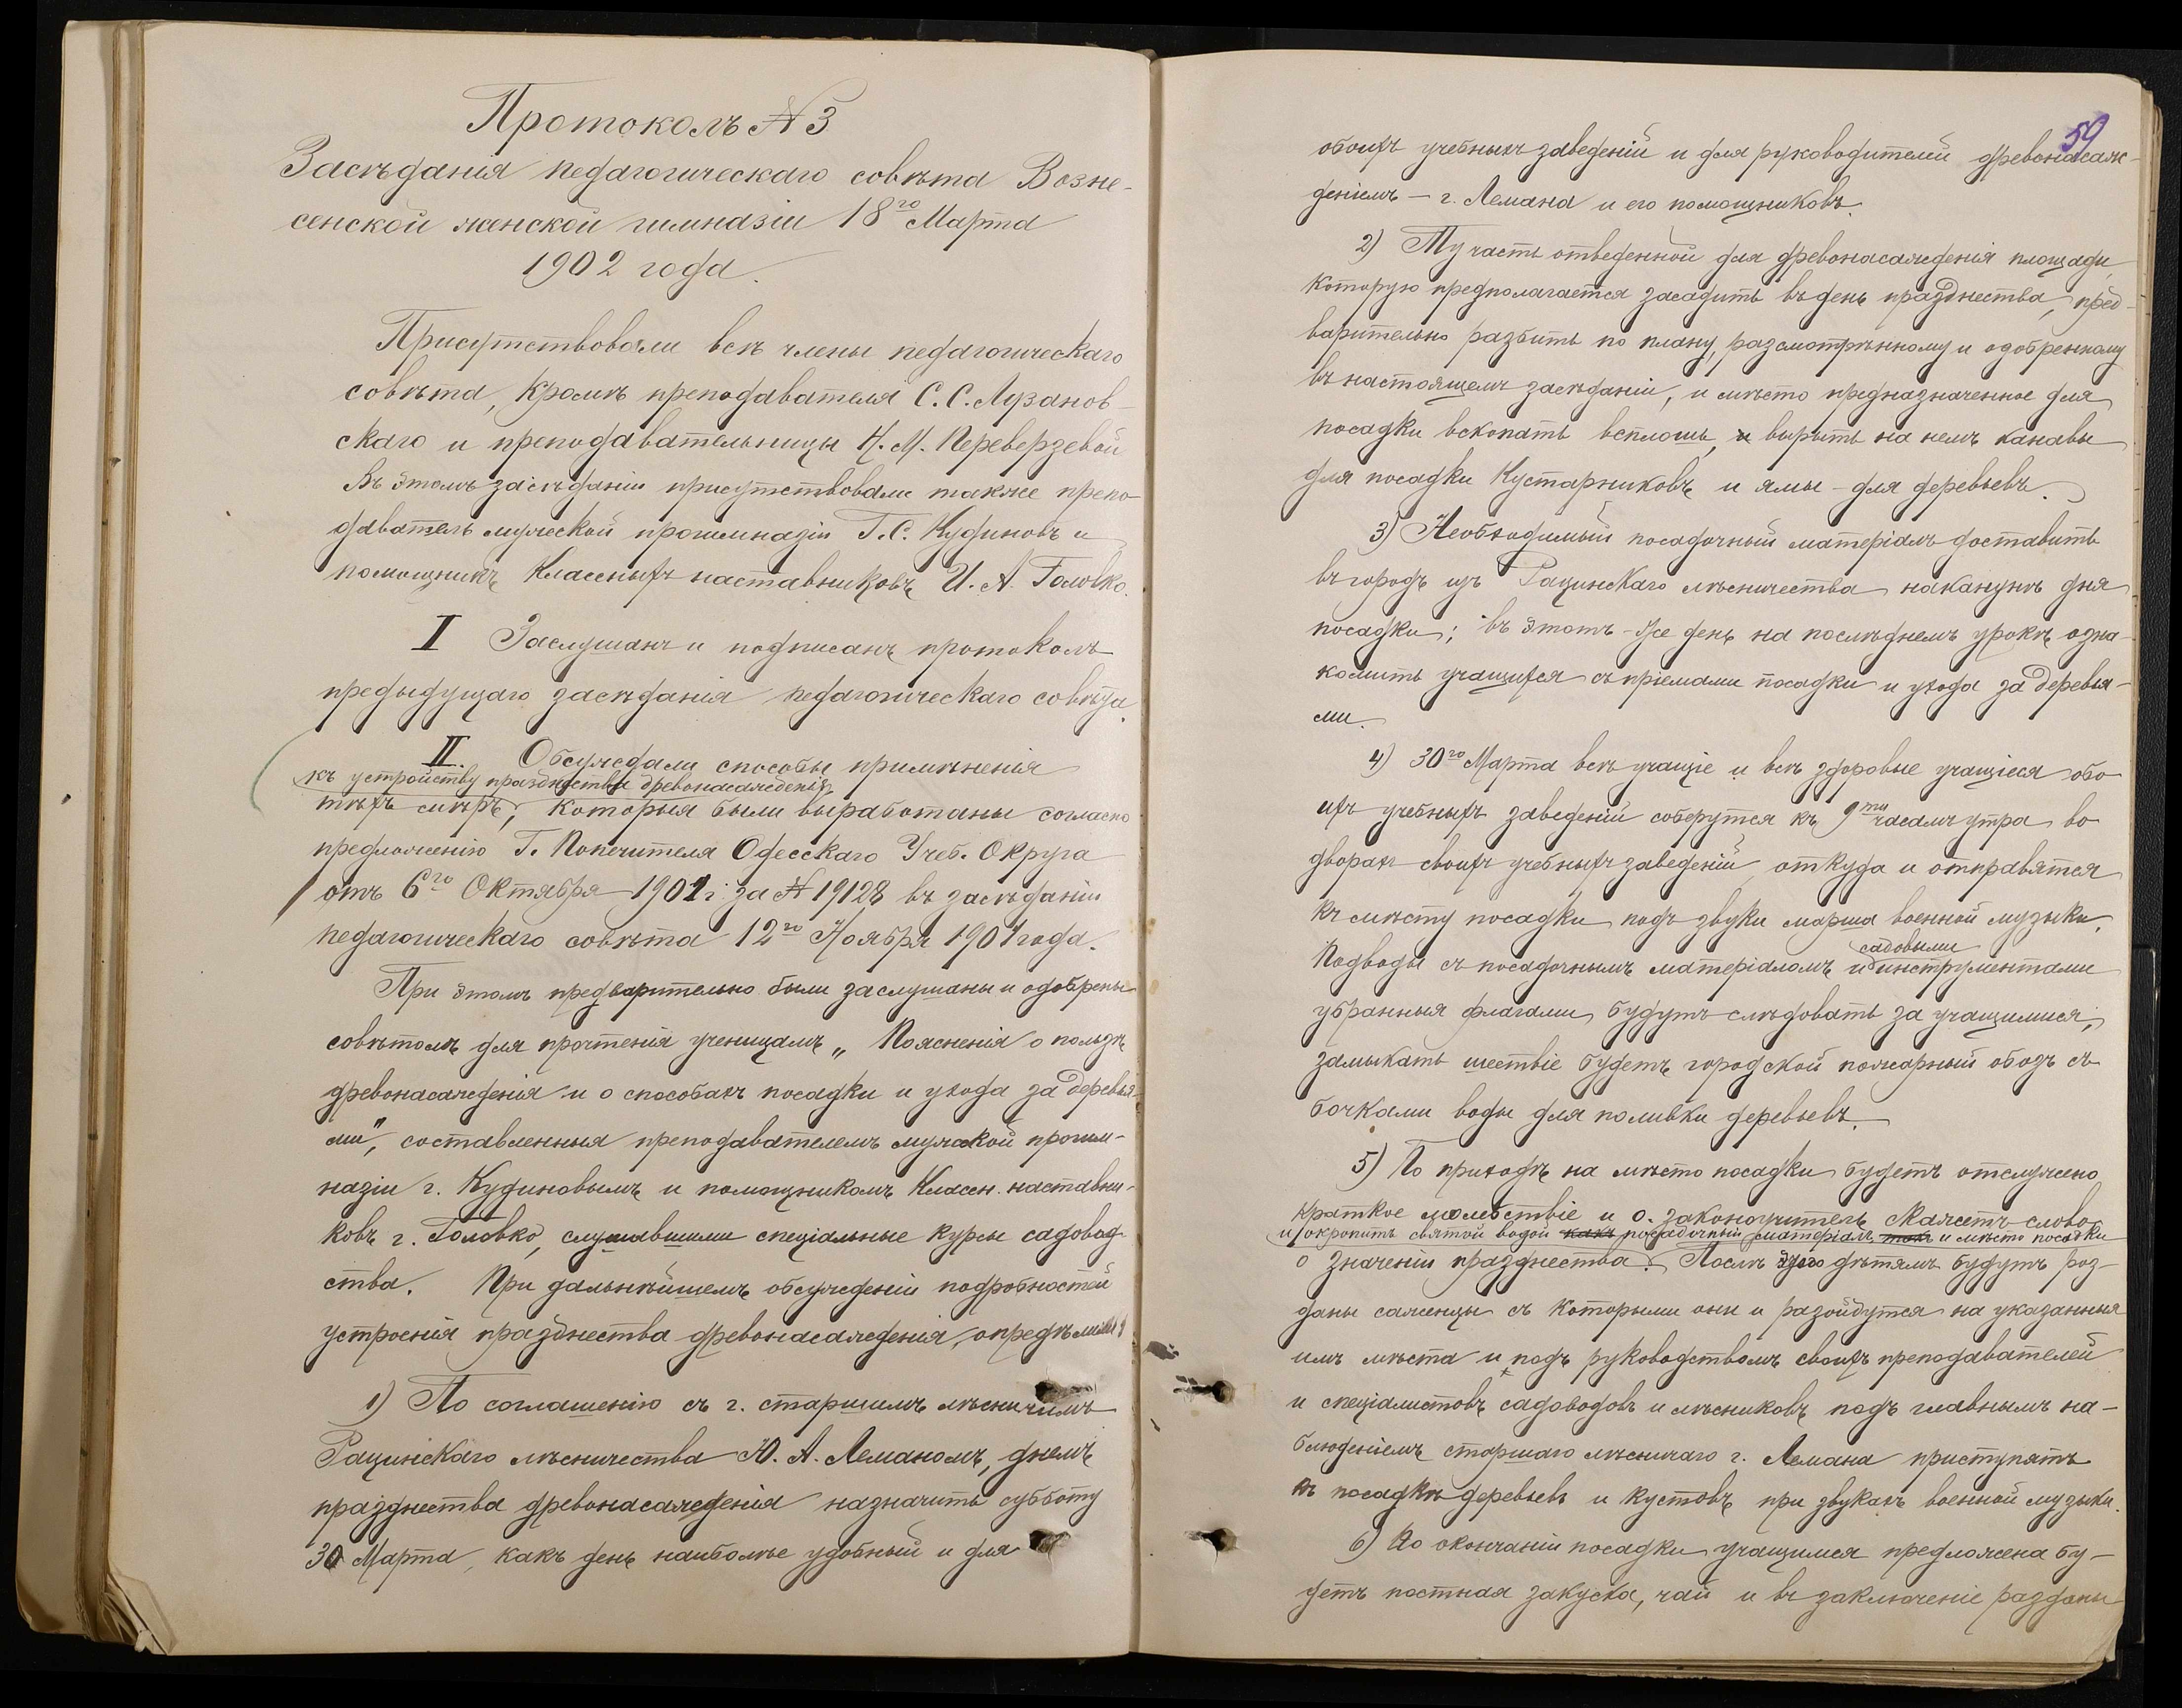 Протоколъ № 3
Засѣданія педагогическаго совѣта Возне-
сенской женской гимназіи 18го Марта
1902 года.
Присутствовали всѣ члены педагогическаго
совѣта, кромѣ преподавателя С. С. Лузанов-
скаго и преподавательницы Н. М. Переверзевой
Въ этомъ засѣданіи присутствовали также препо-
даватель мужеской прогимназіи Г. С. Кудиновъ и
помощникъ классныхъ наставниковъ И. А. Головко.
I Заслушанъ и подписанъ протоколъ
предыдущаго засѣданія педагогическаго совѣта.
II. Обсуждали способы примѣненія
къ устройству празднества древонасажденія
тѣхъ мѣръ, которыя были выработаны согласно
предложенію Г. Попечителя Одесскаго Учеб. Округа
отъ 6го Октября 1901 г. за № 19128 въ засѣданіи
педагогическаго совѣта 12го Ноября 1901 года.
При этомъ предварительно были заслушаны и одобрены
совѣтомъ для прочтенія ученицамъ „Поясненія о пользѣ
древонасажденія и о способахъ посадки и ухода за деревья-
ми", составленныя преподавателемъ мужской прогим-
назіи г. Кудиновымъ и помощникомъ классн. наставни-
ковъ г. Головко, слушавшими спеціальные курсы садовод-
ства. При дальнѣйшемъ обсужденіи подробностей
устроенія празднества древонасажденія, опредѣлили:
1) По соглашенію съ г. старшимъ лѣсничимъ
Рацинскаго лѣсничества Ю. А. Леманомъ, днемъ
празднества древонасажденія назначить субботу
30 Марта, какъ день наиболѣе удобный и для
59
обоихъ учебныхъ заведеній и для руководителей древонасаж-
деніемъ — г. Лемана и его помощниковъ.
2) Ту часть отведенной для древонасажденія площади,
которую предполагается засадить въ день празднества, пред-
варительно разбить по плану, разсмотрѣнному и одобренному
въ настоящемъ засѣданіи, и мѣсто предназначенное для
посадки вскопать всплошь, и вырыть на немъ канавы
для посадки кустарниковъ и ямы - для деревьевъ.
3) Необходимый посадочный матеріалъ доставить
въ городъ изъ Рацинскаго лѣсничества наканунѣ дня
посадки; въ этотъ-же день на послѣднемъ урокѣ озна-
комить учащихся съ пріемами посадки и ухода за деревья-
ми.
4) 30го Марта всѣ учащіе и всѣ здоровые учащіеся обо-
ихъ учебныхъ заведеній соберутся къ 9ти часамъ утра во
дворахъ своихъ учебныхъ заведеній откуда и отправятся
къ мѣсту посадки подъ звуки марша военной музыки.
садовыми
Подводы съ посадочнымъ матеріаломъ и инструментами
убранныя флагами, будутъ слѣдовать за учащимися;
замыкать шествіе будетъ городской пожарный обозъ съ
бочками воды для поливки деревьевъ.
5) По приходѣ на мѣсто посадки будетъ отслужено
краткое молебствіе и о. законоучитель скажетъ слово
и окропитъ святой водой какъ посадочный матеріалъ такъ и мѣсто посадки
о значеніи празднества. Послѣ этого дѣтямъ будутъ роз-
даны саженцы съ которыми они и разойдутся на указанныя
имъ мѣста и подъ руководствомъ своихъ преподавателей
и спеціалистовъ садоводовъ и лѣсниковъ подъ главнымъ на-
блюденіемъ старшаго лѣсничаго г. Лемана приступятъ
къ посадкѣ деревьевъ и кустовъ при звукахъ военной музыки.
6) По окончаніи посадки учащимся предложена бу-
детъ постная закуска, чай и въ заключеніе разданы